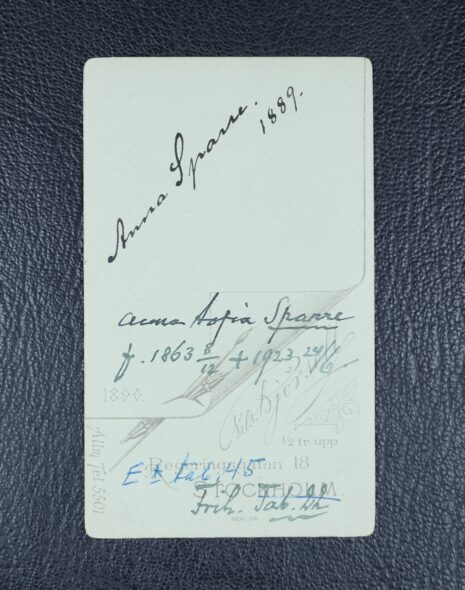 Anna Sparre.
1889.
Anna Sofia Sparre
f. 1863 8/12 + 1923 24/6
1890.
Nils
½ tr. upp
Allm Tel. 5501
Regeringsgatan 18
STOCKHOLM.
E* tab. 45
Frih. Tab.